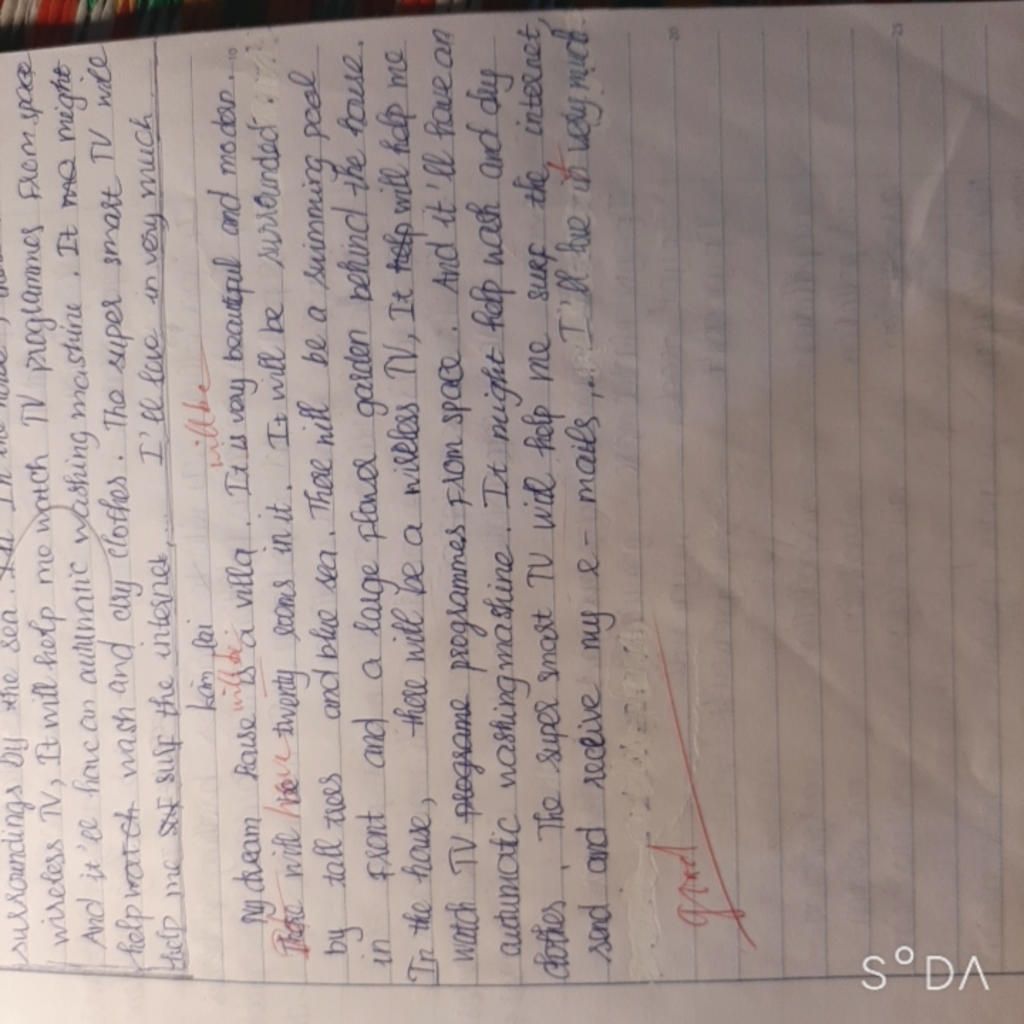 surroundings by the sea. In the house,
wireless TV, It will help me watch TV programmes From space
And it'll have an automatic washing mashine. It me might
help watch wash and dry clothes. The super smast TV will
help me surf the internet, I'll live in very much
kim Sai
My dream house is will be a villa. It is will be very beautiful and modern.
There will have twenty rooms in it. It will be surrounded
by tall trees and blue sea. There will be a swimming pool
in Front and a large flower garden behind the house.
In the house, there will be a wireless TV, It help will help me
watch TV programe programmes From space. And it'll have an
automatic washing mashine. It might help wash and dry
clothes. The super smast TV will help me surf the internet,
send and receive my e-mails, I'll live in very much
good
10
20
25
S°DA